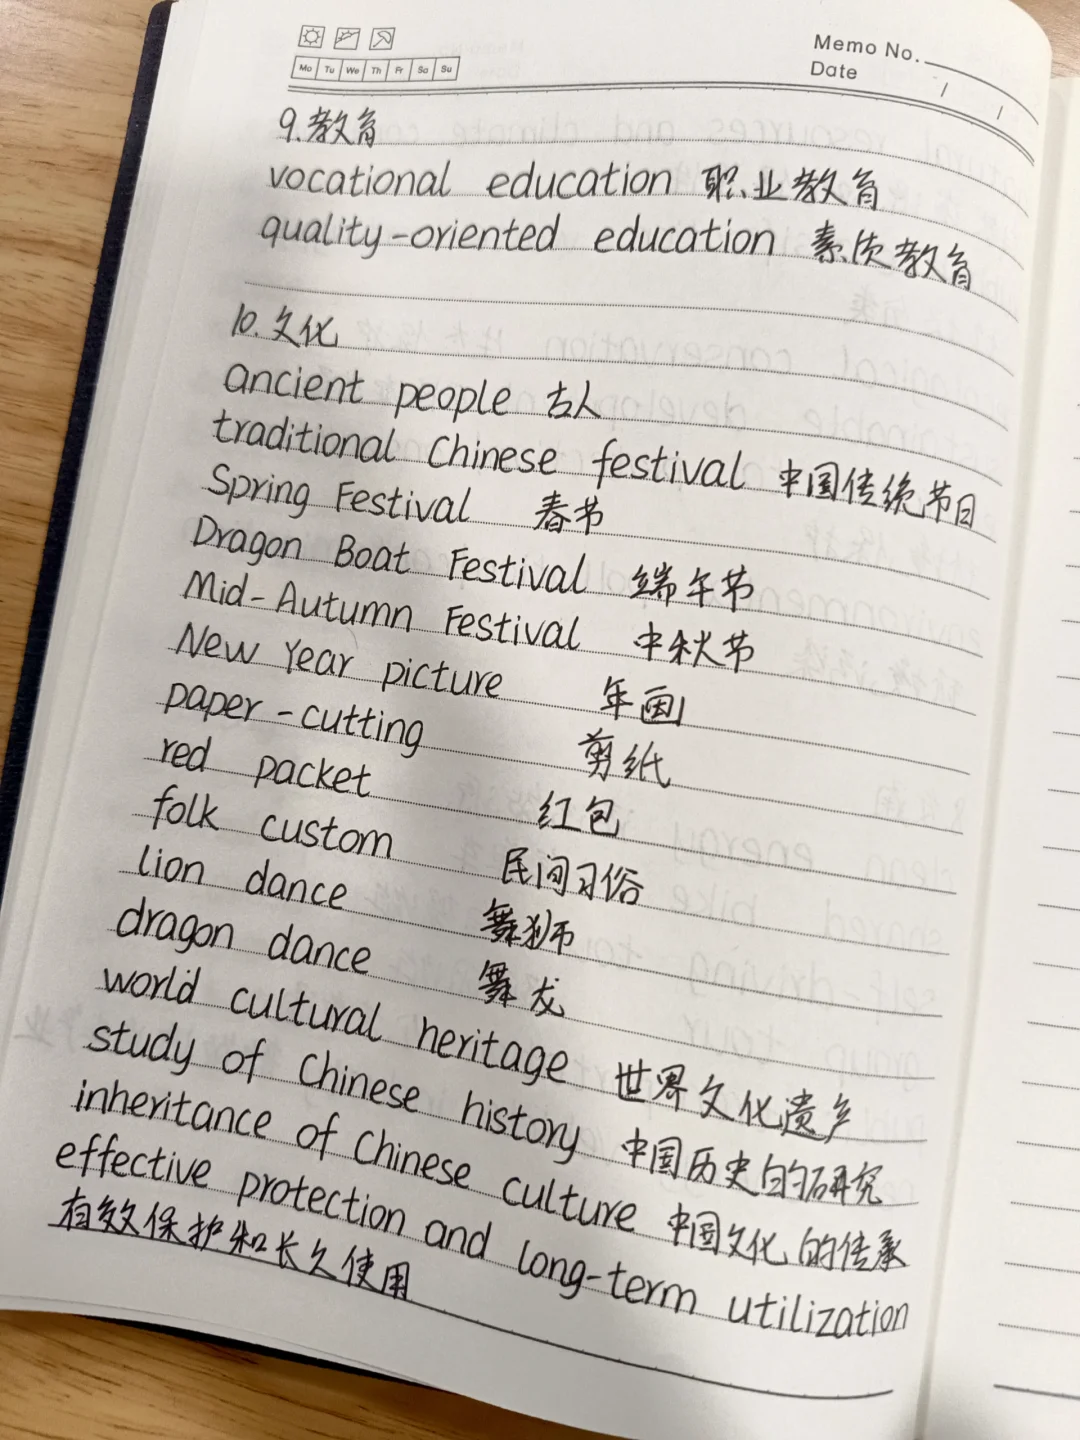 Memo No.
Mo Tu We Th Fr Sa Su
Date / /
9.教育
vocational education 职业教育
quality-oriented education 素质教育
10.文化
ancient people 古人
traditional Chinese festival 中国传统节日
Spring Festival 春节
Dragon Boat Festival 端午节
Mid-Autumn Festival 中秋节
New Year picture 年画
paper-cutting 剪纸
red packet 红包
folk custom 民间习俗
lion dance 舞狮
dragon dance 舞龙
world cultural heritage 世界文化遗产
study of Chinese history 中国历史的研究
inheritance of Chinese culture 中国文化的传承
effective protection and long-term utilization
有效保护和长久使用